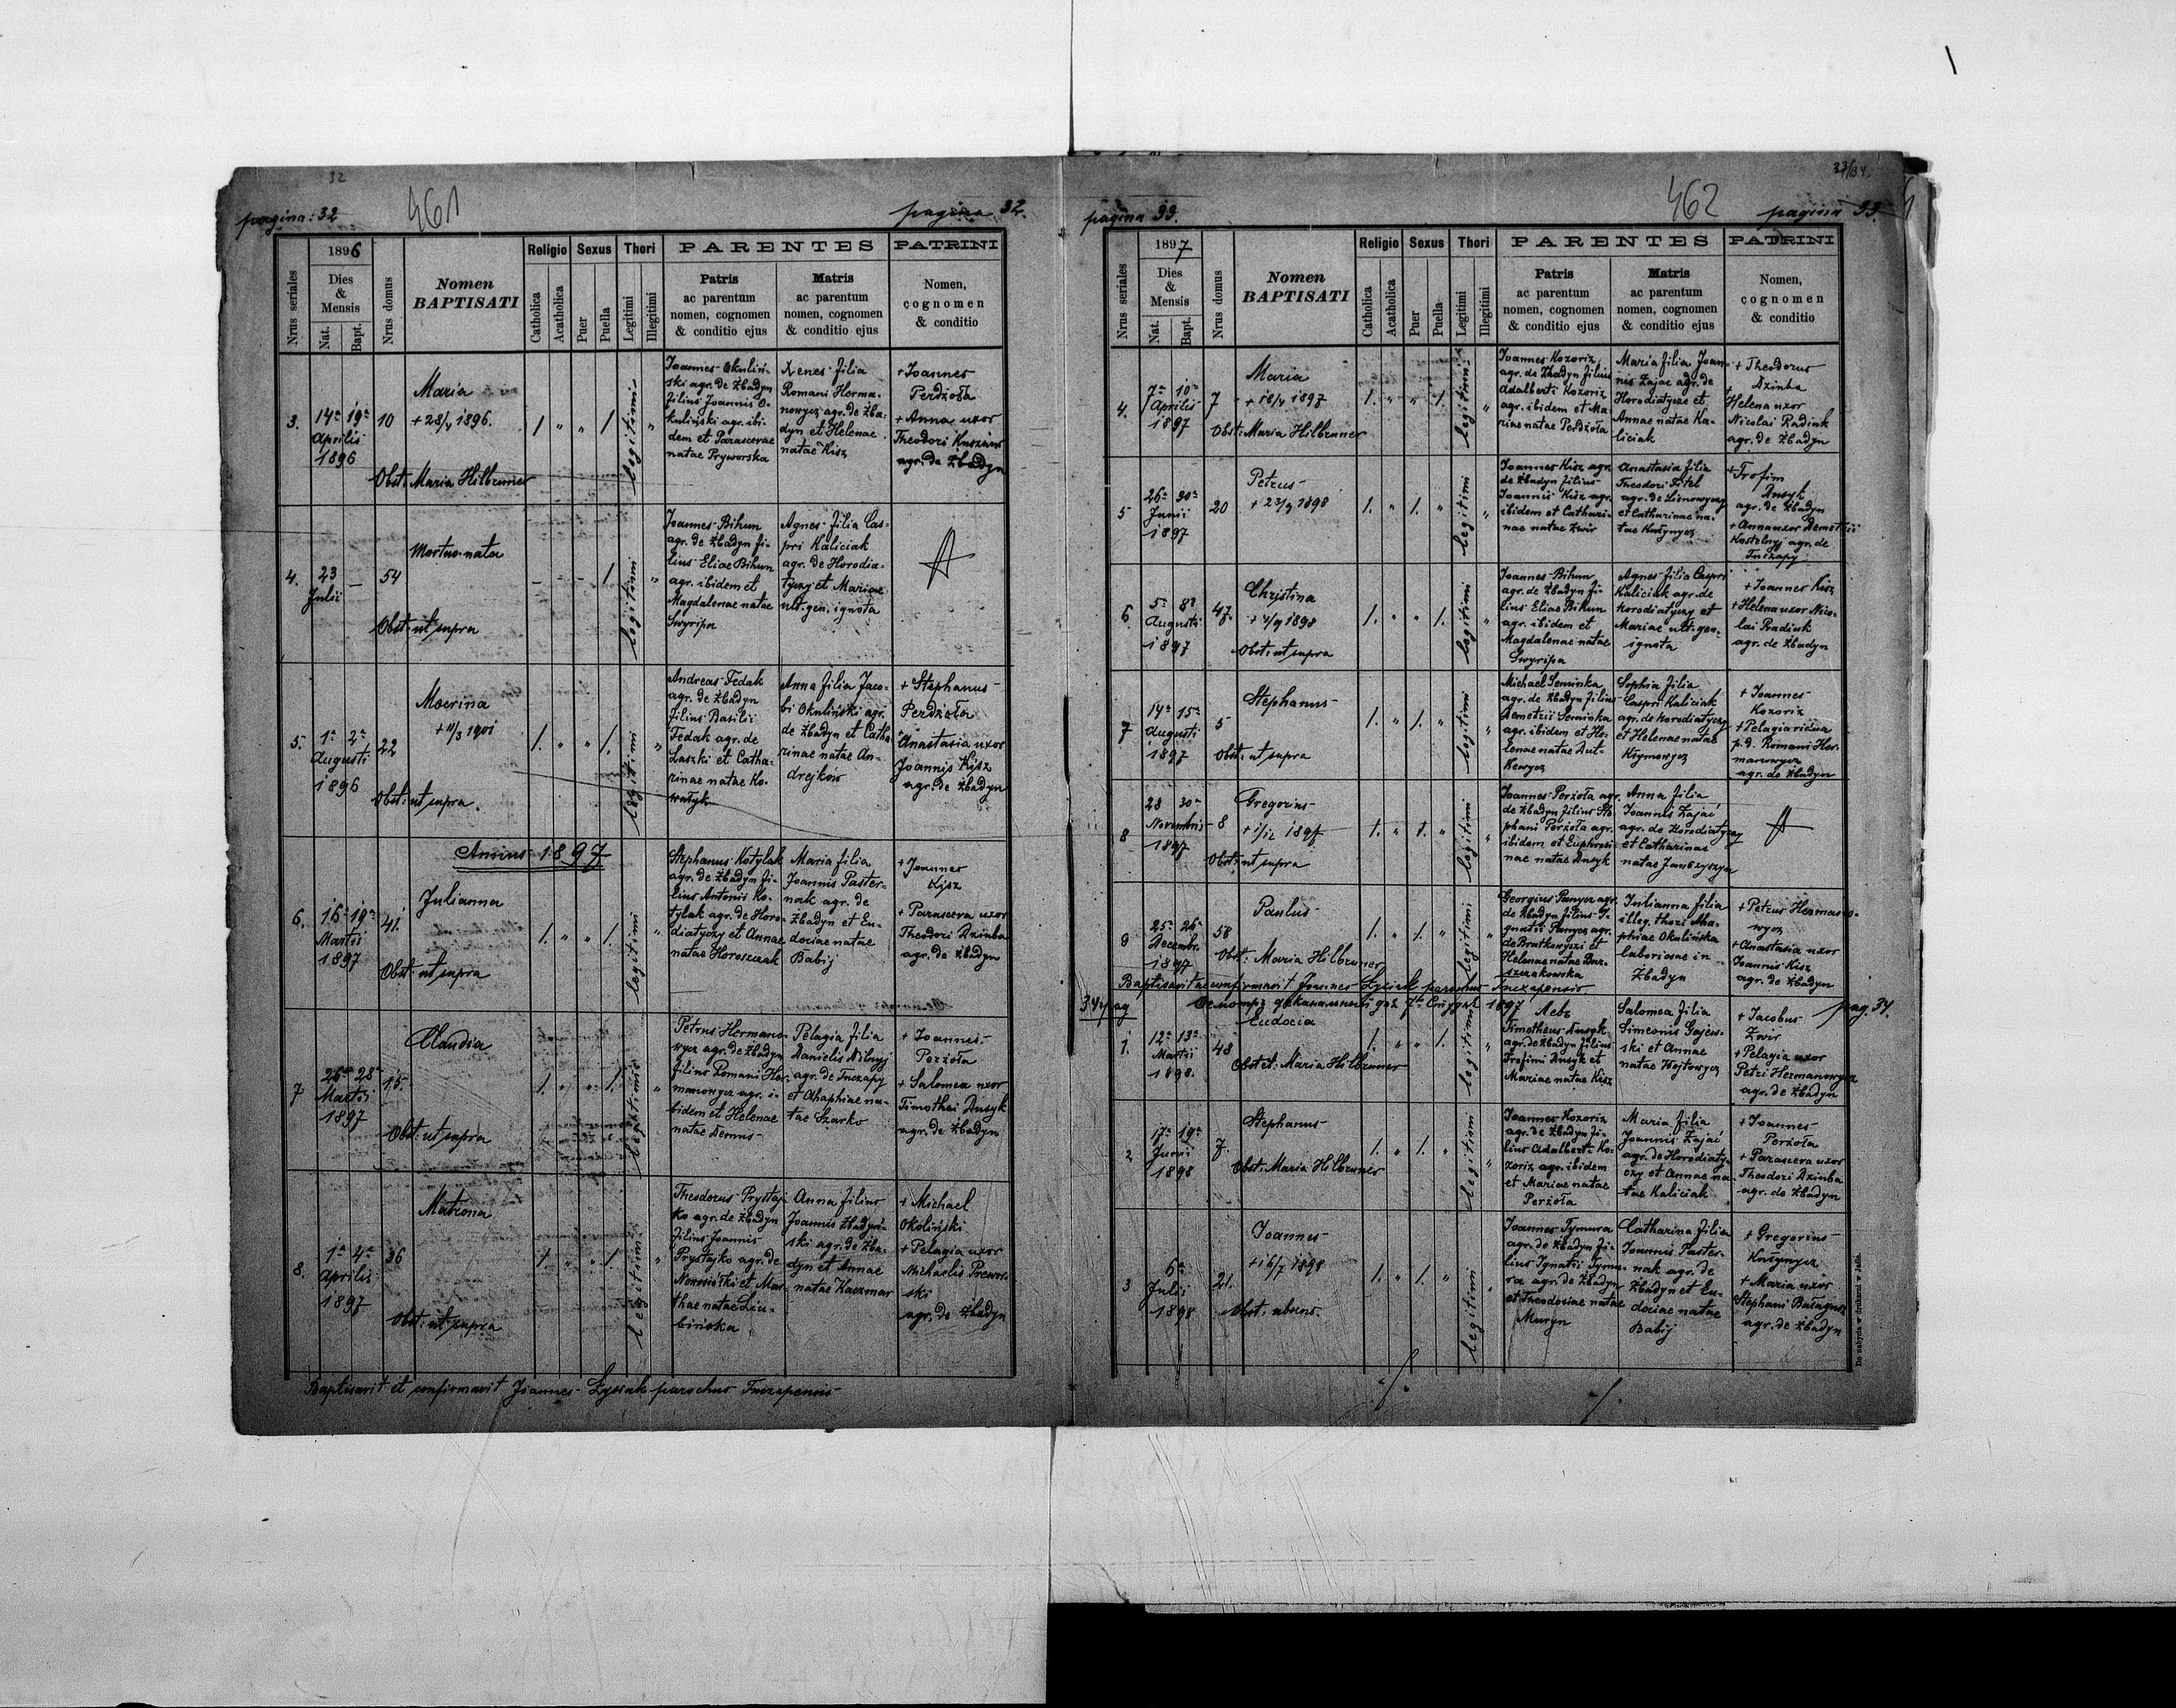 32
461
pagina: 32
pagina 32.
1896
Religio
Sexus
Thori
PARENTES
PATRINI
Nrus seriales
Dies
&
Mensis
Nat.
Bapt.
Nrus domus
Nomen
BAPTISATI
Catholica
Acatholica
Puer
Puella
Legitimi
Illegitimi
Patris
ac parentum
nomen, cognomen
& conditio ejus
Matris
ac parentum
nomen, cognomen
& conditio ejus
Nomen,
cognomen
& conditio
3.
14ª 19ª
Aprilis
1896
10
Maria
+ 28/4 1896.
Obst: Maria Hilbruner
/ " " / legitimi "
Joannes Okuliń-
ski agr. de Żbadyn
filius Joannis O-
kuliński agr. ibi-
dem et Parascevae
natae Pryworska
Xenes filia
Romani Herma-
nowycz agr. de Żba-
dyn et Helenae
natae Kisz
+ Joannes
Perdżoła
+ Anna uxor
Theodori
agr. de Żbadyn
4.
23
Julii
—
54
Mortuo-nata
Obst: ut supra
- - - / legitimi "
Joannes Bihun
agr. de Żbadyn fi-
lius Eliae Bihun
agr. ibidem et
Magdalenae natae
Swyripa
Agnes filia Cas-
pri Kaliciak
agr. de Horodia-
tyczy et Mariae
ult. gen. ignota
5.
1ª 2ª
Augusti
1896
22
Mocrina
+ 11/3 1901
Obst: ut supra.
/. " " /. legitimi "
Andreas Fedak
agr. de Żbadyn
filius Basilii
Fedak agr. de
Laszki et Catha-
rinae natae Ko-
watyk
Anna filia Jaco-
bi Okuliński agr.
de Żbadyn et Catha-
rinae natae An-
drejków
+ Stephanus
Perdżoła
Anastasia uxor
Joannis Kisz
agr. de Żbadyn
Annus 1897
6.
16ª 19ª
Martii
1897
41.
Julianna
Obst: ut supra
/. " " /. legitimi "
Stephanus Kotylak
agr. de Żbadyn fi-
lius Antonii Ko-
tylak agr. de Horo-
diatyczy et Annae
natae Horoszczak
Maria filia
Joannis Paster-
nak agr. de
Żbadyn et Eu-
dociae natae
Babij
+ Joannes
Kisz
+ Parasceva uxor
Theodori Dzinba
agr. de Żbadyn
7
26ª 28ª
Martii
1897
15.
Claudia
Obst: ut supra
/. " " /. legitimi "
Petrus Hermano-
wycz agr. de Żbadyn
filius Romani Her-
manowycz agr. i-
bidem et Helenae
natae Demus
Pelagia filia
Danielis Dilnyj
agr. de Tuczapy
et Ahaphiae na-
tae Szarko
+ Joannes
Perżoła
+ Salomea uxor
Timothei Dusyk
agr. de Żbadyn
8.
1ª 4ª
Aprilis
1897
36
Matrona
Obst: ut supra
/. " " /. legitimi "
Theodorus Prystaj-
ko agr. de Żbadyn
filius Joannis
Prystajko agr. de
et Mar-
thae natae Liu-
bińska
Anna filius
Joannis Żbadyń-
ski agr. de Żba-
dyn et Annae
natae Kaczmar
+ Michael
Okoliński
+ Pelagia uxor
Michaelis Prewor-
ski
agr. de Żbadyn
Baptisavit et confirmavit Joannes Łysiak parochus Tuczapensis
33/34.
462
pagina 33.
pagina 33.
1897
Religio
Sexus
Thori
PARENTES
PATRINI
Nrus seriales
Dies
&
Mensis
Nat.
Bapt.
Nrus domus
Nomen
BAPTISATI
Catholica
Acatholica
Puer
Puella
Legitimi
Illegitimi
Patris
ac parentum
nomen, cognomen
& conditio ejus
Matris
ac parentum
nomen, cognomen
& conditio ejus
Nomen,
cognomen
& conditio
4.
7ª 10ª
Aprilis
1897
7
Maria
+ 18/4 1897
Obst: Maria Hilbruner
/. " " /. legitimi "
Joannes Kozoriz
agr. de Żbadyn filius
Adalberti Kozoriz
agr. ibidem et Ma-
riae natae Perdżoła
Maria filia Joan-
nis Zając agr. de
Horodiatycze et
Annae natae Ka-
liciak
+ Theodorus
Dzinba
+ Helena uxor
Nicolai Radiuk
agr. de Żbadyn
5
26ª 30ª
Junii
1897
20
Petrus
+ 23/9 1898
/. " /. " legitimi
Joannes Kisz agr.
de Żbadyn filius
Joannis Kisz agr.
ibidem et Cathari-
nae natae Żwir
Anastasia filia
Theodori Fitel
agr. de Lisnowyczy
et Catharinae na-
tae Kożynycz
+ Trofim
Dusyk
agr. de Żbadyn
+ Anna uxor Demetrii
Kostelnyj agr. de
Tuczapy
6
5ª 8ª
Augusti
1897
47.
Christina
+ 4/9 1898
Obst: ut supra
/. " " /. legitimi "
Joannes Bihun
agr. de Żbadyn fi-
lius Eliae Bihun
agr. ibidem et
Magdalenae natae
Swyripa
Agnes filia Caspri
Kaliciak agr. de
Horodiatyczy et
Mariae ult. gen.
ignota
+ Joannes Kisz
+ Helena uxor Nico-
lai Radiuk
agr. de Żbadyn
7
14ª 15ª
Augusti
1897
5
Stephanus
Obst: ut supra
/. " /. " legitimi "
Michael Seminka
agr. de Żbadyn filius
Demetrii Seminka
agr. ibidem et He-
lenae natae Dut-
kewycz
Sophia filia
Caspri Kaliciak
agr. de Horodiatyczy
et Helenae natae
Klymowycz
+ Joannes
Kozoriz
+ Pelagia
p.d. Romani Her-
manowycz
agr. de Żbadyn
8
28 30ª
Novembris
1897
8
Gregorius
+ 1/12 1897
Obst: ut supra
/. " /. " legitimi "
Joannes Perżoła agr.
de Żbadyn filius Ste-
phani Perżoła agr.
ibidem et Euphrosi-
nae natae Dusyk
Anna filia
Joannis Zając
agr. de Horodiatyczy
et Catharinae
natae Janczyszyn
9
25ª 26ª
Decembr.
1897
58
Paulus
Obst: Maria Hilbruner
/. " /. " legitimi "
Georgius Panycz agr.
de Żbadyn filius I-
gnatii Panycz agr.
de Bratkowyczi et
Helenae natae Bar-
szczakowska
Julianna filia
illeg. thori Aha-
phiae Okulińska
laboriosae in
Żbadyn
+ Petrus Hermano-
wycz
+ Anastasia uxor
Joannis Kisz
agr. de Żbadyn
Baptisavit ac confirmavit Joannes Łysiak parochus Tuczapensis
34 pag
1897
pag. 34.
1.
12ª 13ª
Martii
1898.
48
Eudocia
Obstet: Maria Hilbruner
/. " " /. legitimi "
Timotheus Dusyk
agr. de Żbadyn filius
Trofimi Dusyk et
Mariae natae Kisz
Salomea filia
Simeonis Gajew-
ski et Annae
natae Wojtowycz
+ Jacobus
Żwir
+ Pelagia uxor
Petri Hermanowycz
agr. de Żbadyn
2
17ª 19ª
Junii
1898
7.
Stephanus
Obst: Maria Hilbruner
/. " /. " legitimi "
Joannes Kozoriz
agr. de Żbadyn fi-
lius Adalberti Ko-
zoriz agr. ibidem
et Mariae natae
Perżoła
Maria filia
Joannis Zając
agr. de Horodiaty-
czy et Annae na-
tae Kaliciak
+ Joannes
Perżoła
+ Parasceva uxor
Theodori Dzinba
agr. de Żbadyn
3
6ª
Julii
1898
21.
Joannes
+ 16/7 1898
Obst. absens.
/. " /. " legitimi "
Joannes Tymura
agr. de Żbadyn fi-
lius Ignatii Tymu-
ra agr. de Żbadyn
et Theodosiae natae
Muryn
Catharina filia
Joannis Paster-
nak agr. de
Żbadyn et Eu-
dociae natae
Babij
+ Gregorius
Kożynycz
+ Maria uxor
Stephani
agr. de Żbadyn
Do nabycia w drukarni w Jaśle.